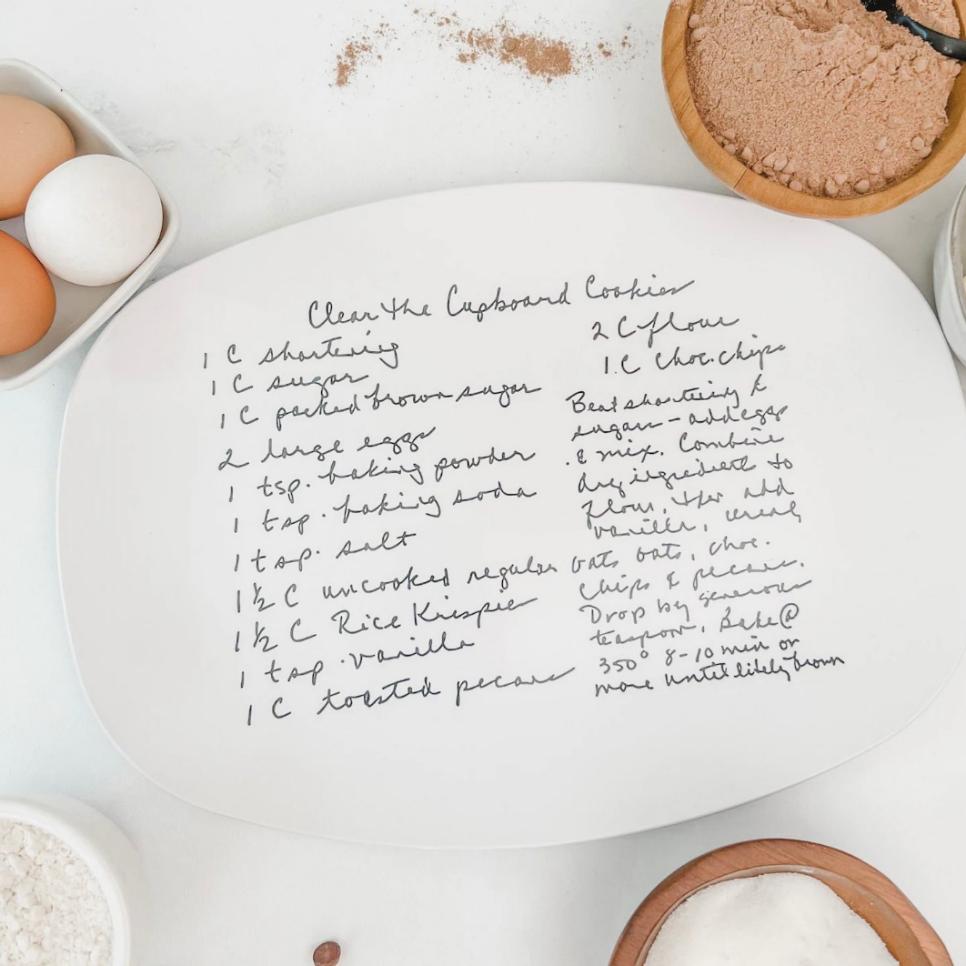 Clear the Cupboard Cookies
1 C shortening
1 C sugar
1 C packed brown sugar
2 large eggs
1 tsp. baking powder
1 tsp. baking soda
1 tsp. salt
1 ½ C uncooked regular oats
1 ½ C Rice Krispies
1 tsp. vanilla
1 C toasted pecans
2 C flour
1 C Choc. chips
Beat shortening &
sugars - add eggs
& mix. Combine
dry ingredients to
flour, then add
vanilla, cereal,
oats, choc.
chips & pecans.
Drop by generous
teaspoon. Bake @
350° 8-10 min or
more until lightly brown